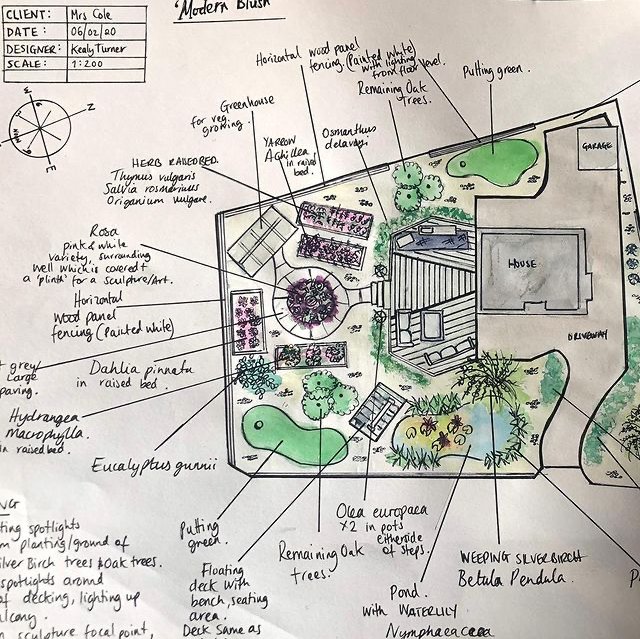 'Modern Blush'
CLIENT: Mrs Cole
DATE: 06/02/20
DESIGNER: Kealy Turner
SCALE: 1:200
N
Horizontal wood panel
fencing (Painted white)
with lighting
from floor level.
Remaining Oak
trees.
Putting green.
Greenhouse
for veg
growing.
YARROW
Achillea
in raised
bed.
Osmanthus
delavayi
HERB RAISED BED.
Thymus vulgaris
Salvia rosmarinus
Origanum vulgare.
GARAGE
HOUSE
DRIVEWAY
Rosa
pink & white
variety, surrounding
well which is covered +
a 'plinth' for a sculpture/Art.
Horizontal
Wood panel
fencing (Painted white)
grey/
Large
paving.
Dahlia pinnata
in raised bed
Hydrangea
Macrophylla.
in raised bed
Eucalyptus gunnii
Putting
green.
Floating
deck with
bench, seating
area.
Deck same as
Remaining Oak
trees.
Olea europaea
x2 in pots
eitherside
of steps.
Pond.
with WATERLILY
Nymphaeaceae
WEEPING SILVERBIRCH
Betula Pendula.
NG
ting spotlights
m planting/ground of
ilver Birch trees & Oak trees.
spotlights around
of decking, lighting up
alcony.
sculpture focal point,